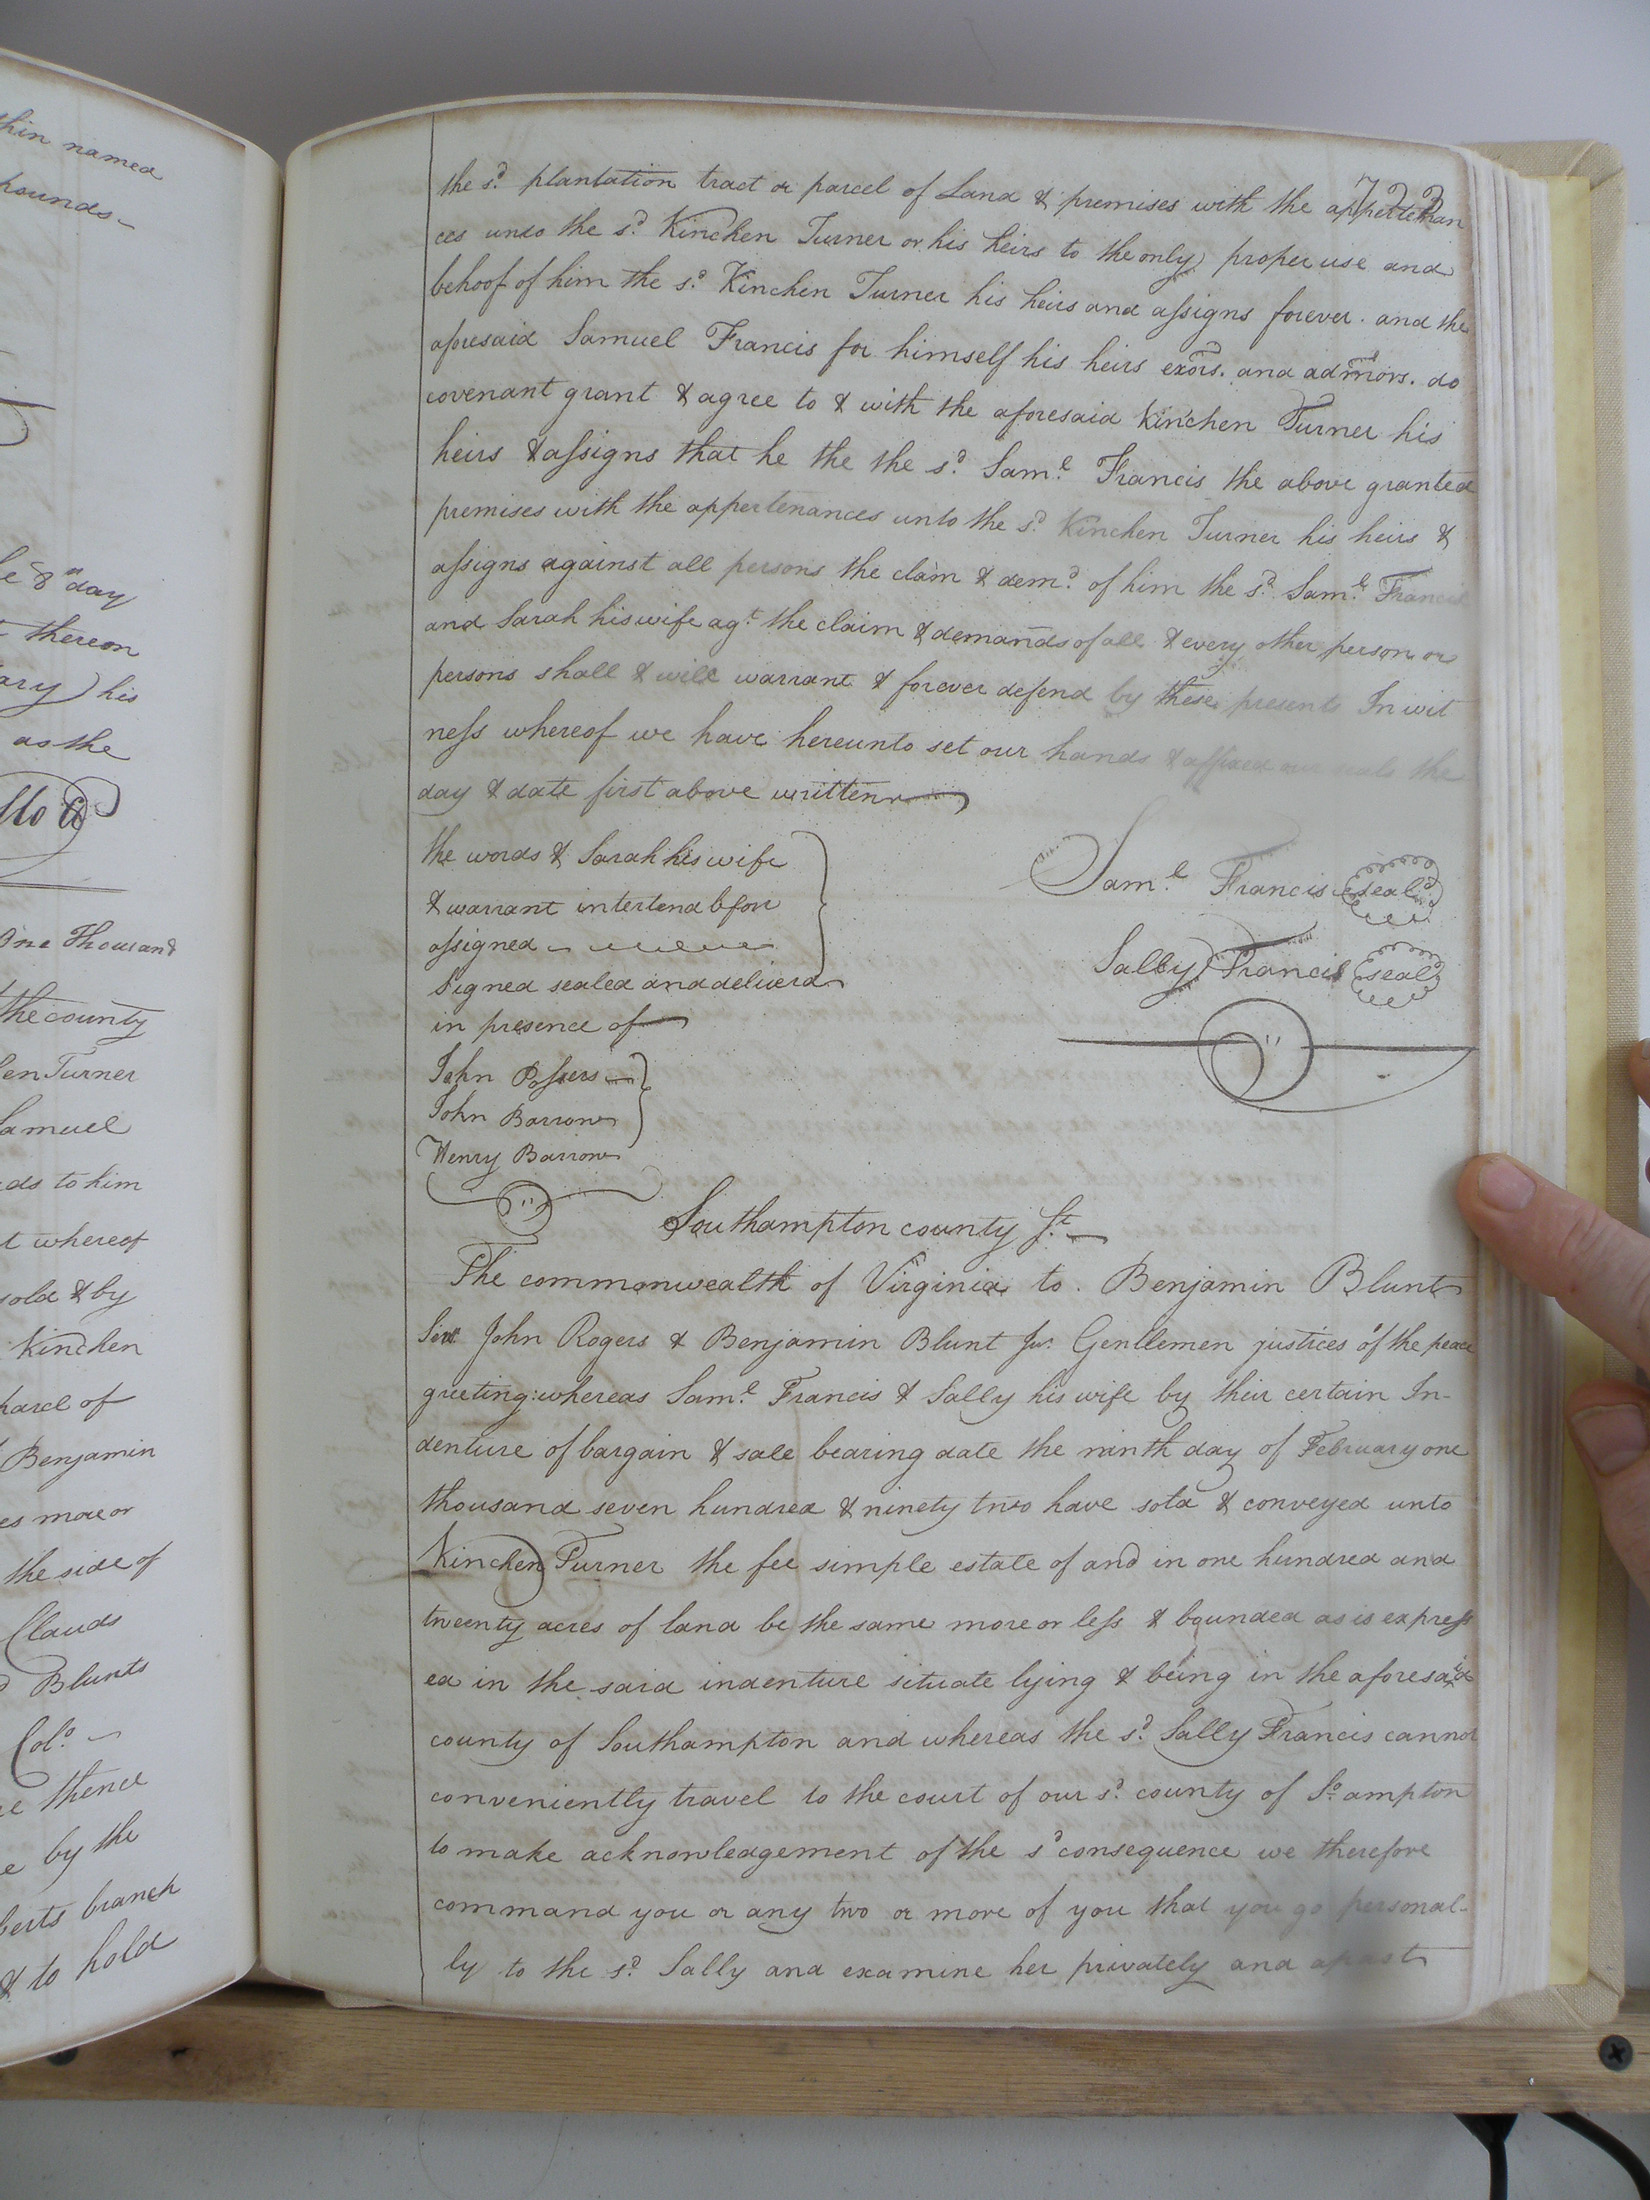 thin named
pounds
8th day
thereon
his
as the
One Thousand
the county
Turner
Samuel
to him
whereof
sold & by
Kinchen
parcel of
Benjamin
more or
the side of
Clauds
Blunts
Colo.
thence
by the
branch
& to hold
722
the sd. plantation tract or parcel of Land & premises with the appertenan
ces unto the sd. Kinchen Turner or his heirs to the only proper use and
behoof of him the sd. Kinchen Turner his heirs and assigns forever. and the
aforesaid Samuel Francis for himself his heirs exors. and admors. do
covenant grant & agree to & with the aforesaid Kinchen Turner his
heirs & assigns that he the the sd. Saml. Francis the above granted
premises with the appertenances unto the sd. Kinchen Turner his heirs &
assigns against all persons the claim & demd. of him the sd. Saml. Francis
and Sarah his wife agt. the claim & demands of all & every other person or
persons shall & will warrant & forever defend by these presents In wit
ness whereof we have hereunto set our hands & affixed our seals the
day & date first above written
the words & Sarah his wife
& warrant intertend before
assigned
Signed sealed and deliverd
in presence of
John
John Barrow
Henry Barrow
Saml. Francis seal
Sally Francis seal
Southampton county St.
The commonwealth of Virginia to. Benjamin Blunt
Senr. John Rogers & Benjamin Blunt Jur. Gentlemen justices of the peace
greeting: whereas Saml. Francis & Sally his wife by their certain In-
denture of bargain & sale bearing date the ninth day of February one
thousand seven hundred & ninety two have sold & conveyed unto
Kinchen Turner the fee simple estate of and in one hundred and
tweenty acres of land be the same more or less & bounded as is express
ed in the said indenture situate lying & being in the aforesaid
county of Southampton and whereas the sd. Sally Francis cannot
conveniently travel to the court of our sd. county of So.ampton
to make acknowledgement of the sd consequence we therefore
command you or any two or more of you that you go personal-
ly to the sd. Sally and examine her privately and apart